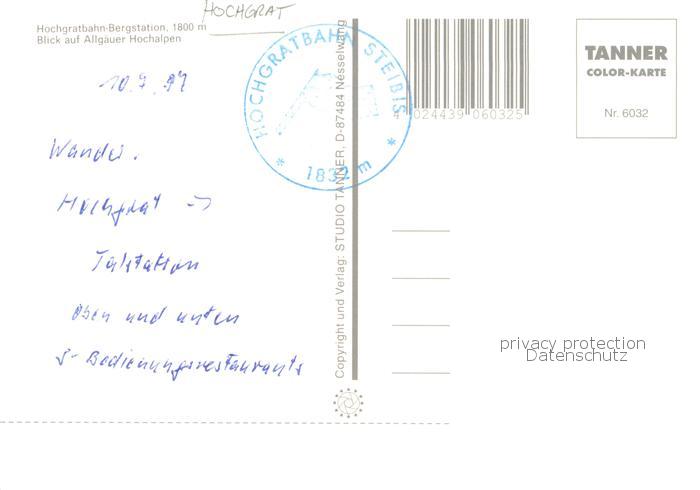 HOCHGRAT
Hochgratbahn-Bergstation, 1800 m
Blick auf Allgäuer Hochalpen
10.7.97
Wander.
Hochgrat ->
Talstation
Oben und unten
S-Bedienungsrestaurants
HOCHGRATBAHN STEIBIS
* 1832 m *
Copyright und Verlag: STUDIO TANNER, D-87484 Nesselwang
4 024439 060325
TANNER
COLOR-KARTE
Nr. 6032
privacy protection
Datenschutz